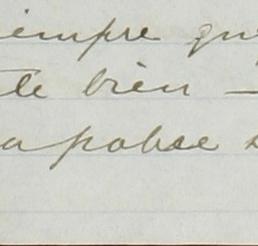 iempre qu
te bien —
a pobse s